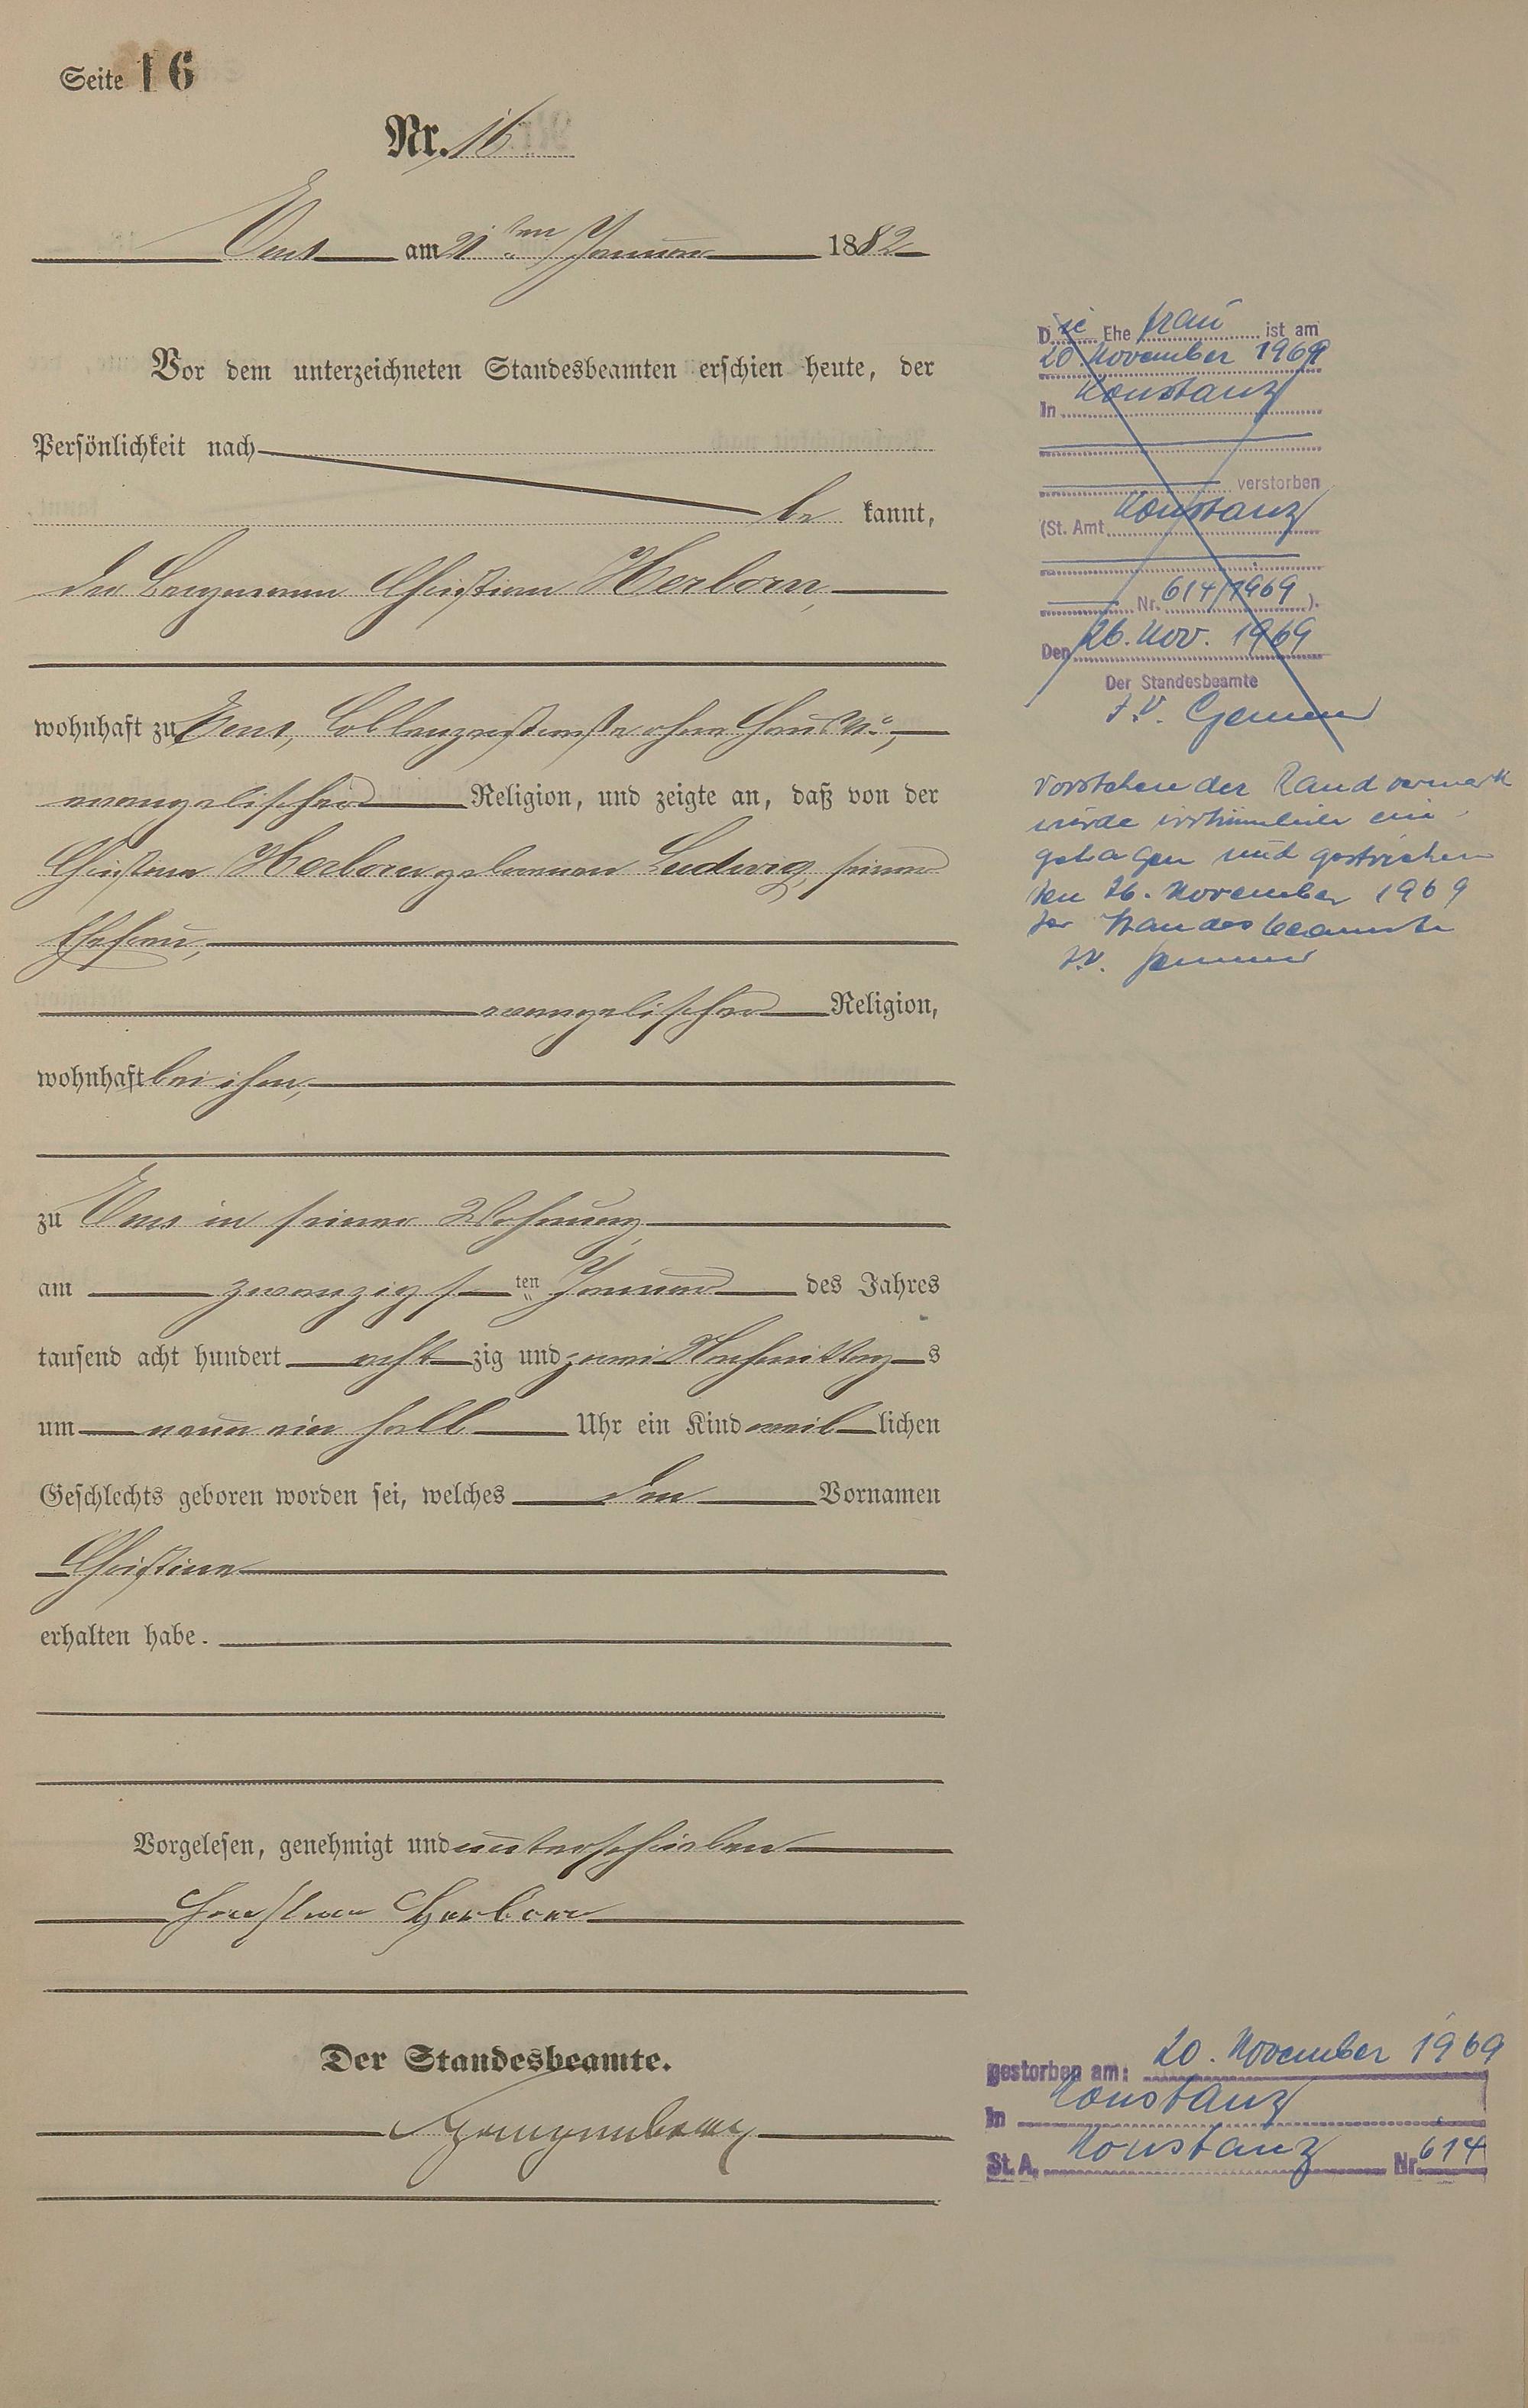 Seite 16
Nr. 16
Ems am 21ten Januar 1882
Vor dem unterzeichneten Standesbeamten erschien heute, der
Persönlichkeit nach
be kannt,
der Bergmann Christian Herborn,
wohnhaft zu Ems, Coblenzerstraße ohne Haus No,
evangelischer Religion, und zeigte an, daß von der
Christine Herborn geborenen Ludwig, seiner
Ehefrau,
evangelischer Religion,
wohnhaft bei ihm,
zu Ems in seiner Wohnung
am zwanzigsten Januar des Jahres
tausend acht hundert achtzig und zwei Nachmittags
um neun ein halb Uhr ein Kind weiblichen
Geschlechts geboren worden sei, welches den Vornamen
Christine
erhalten habe.
Vorgelesen, genehmigt und unterschrieben
Christian Herborn
Der Standesbeamte.
Die Ehe frau ist am
20. November 1969
in Konstanz
verstorben
(St. Amt Konstanz
Nr. 614/1969).
Den 26. Nov. 1969
Der Standesbeamte
I.V.
Vorstehender Randvermerk
wurde irrtümlich ein-
getragen und gestrichen
den 26. November 1969
Der Standesbeamte
I.V.
gestorben am: 20. November 1969
in Konstanz
St. A. Konstanz Nr. 614